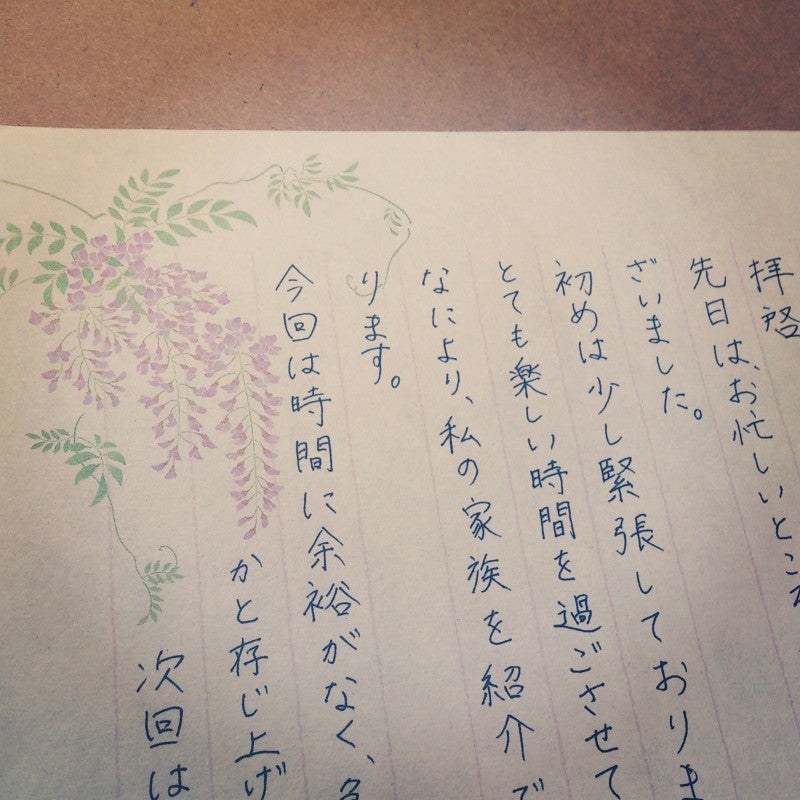 拝啓
先日は、お忙しいところ
ざいました。
初めは少し緊張しておりま
とても楽しい時間を過ごさせて
なにより、私の家族を紹介で
ります。
今回は時間に余裕がなく、
かと存じ上げ
次回は